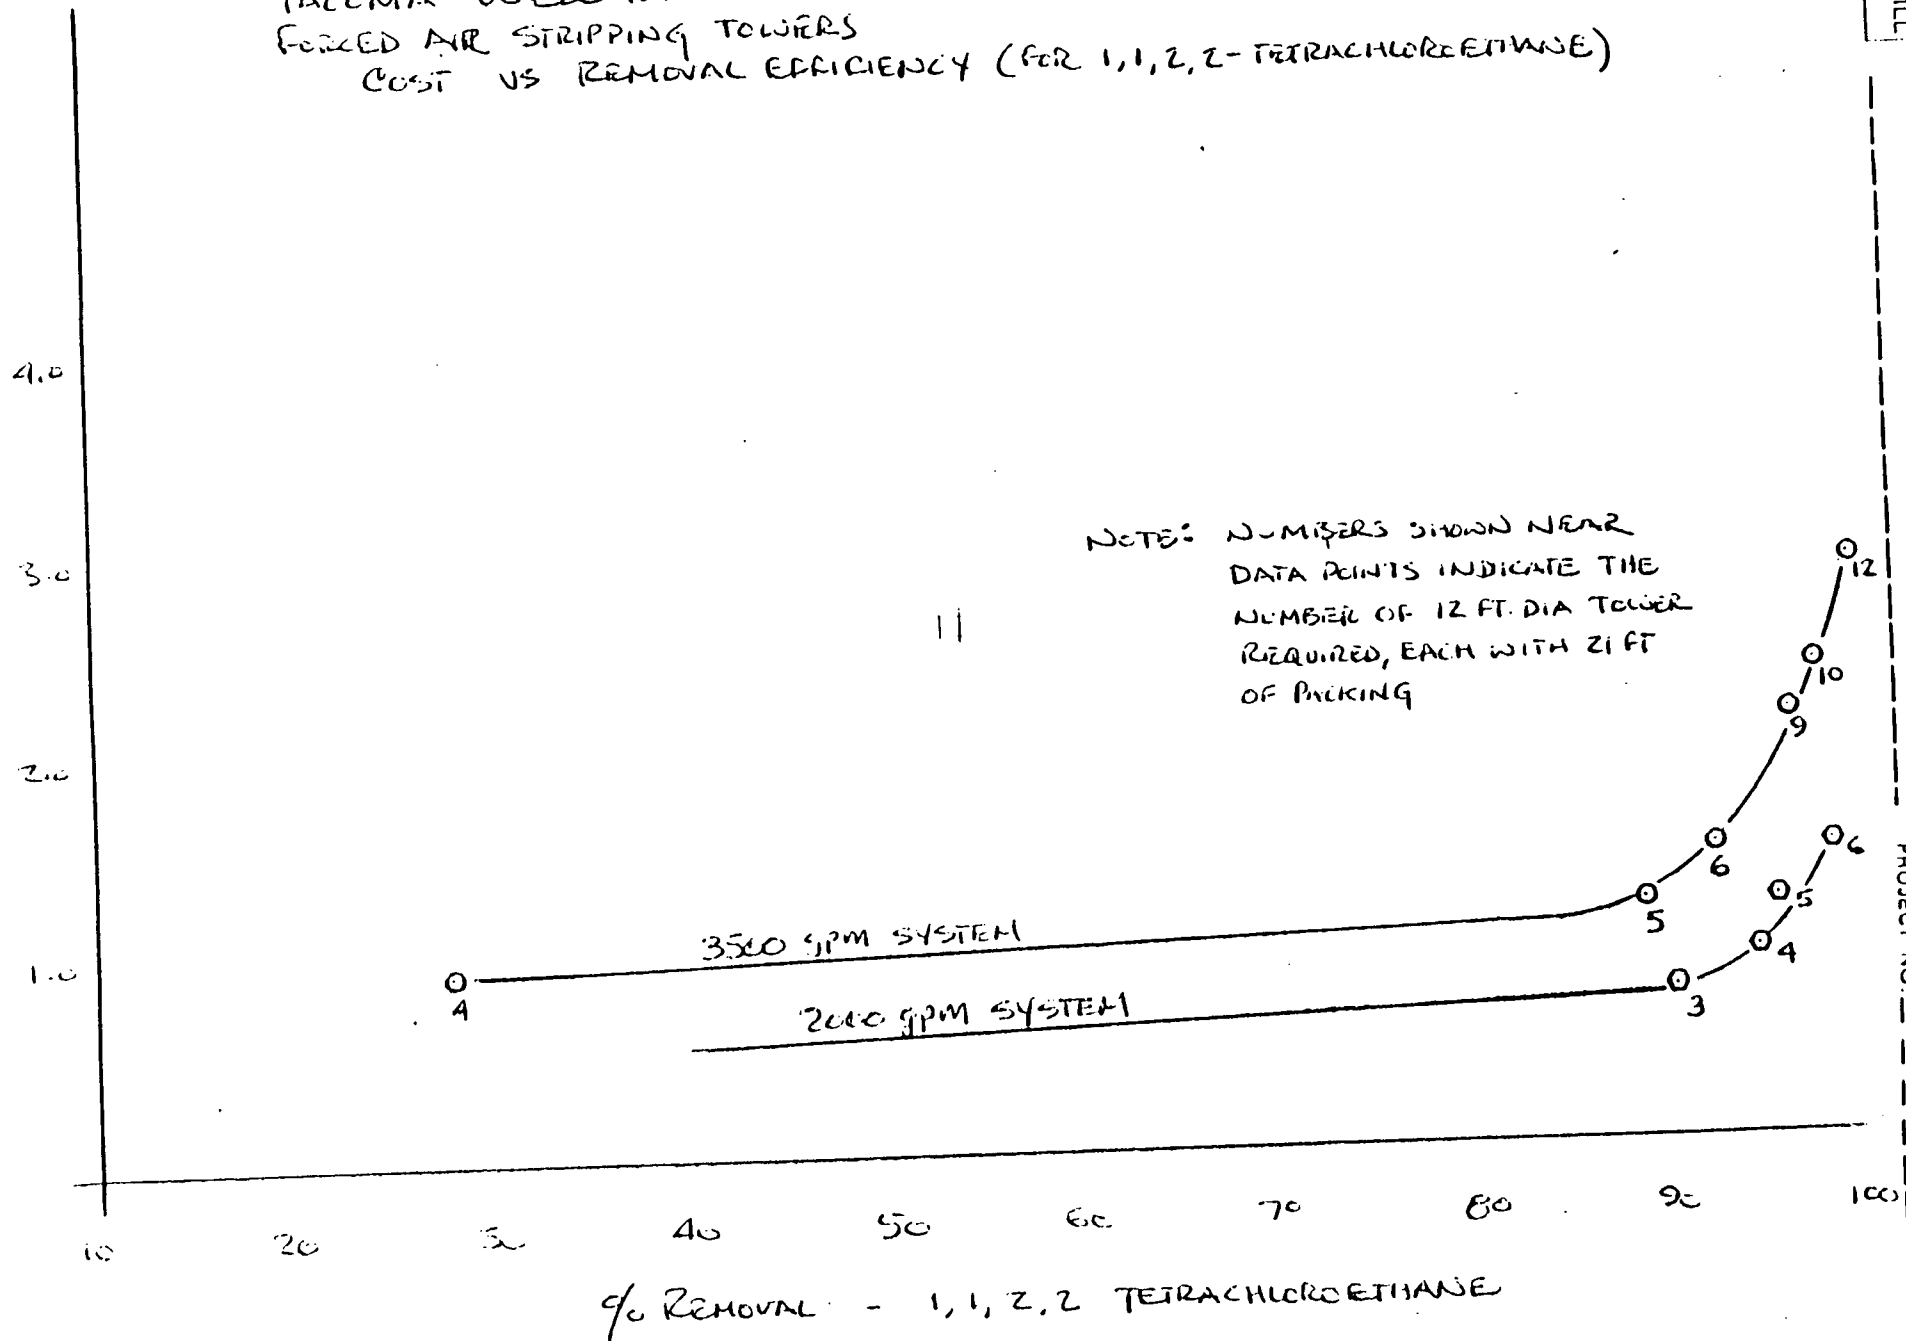 FORCED AIR STRIPPING TOWERS
COST VS REMOVAL EFFICIENCY (FOR 1,1,2,2-TETRACHLOROETHANE)
4.0
NOTE: NUMBERS SHOWN NEAR
DATA POINTS INDICATE THE
NUMBER OF 12 FT. DIA TOWER
REQUIRED, EACH WITH 21 FT
OF PACKING
3.0
12
10
9
2.0
6
6
5
5
3500 gpm SYSTEM
4
1.0
4
3
2000 gpm SYSTEM
10
20
30
40
50
60
70
80
90
100
% REMOVAL - 1,1,2,2 TETRACHLOROETHANE
PROJECT NO.